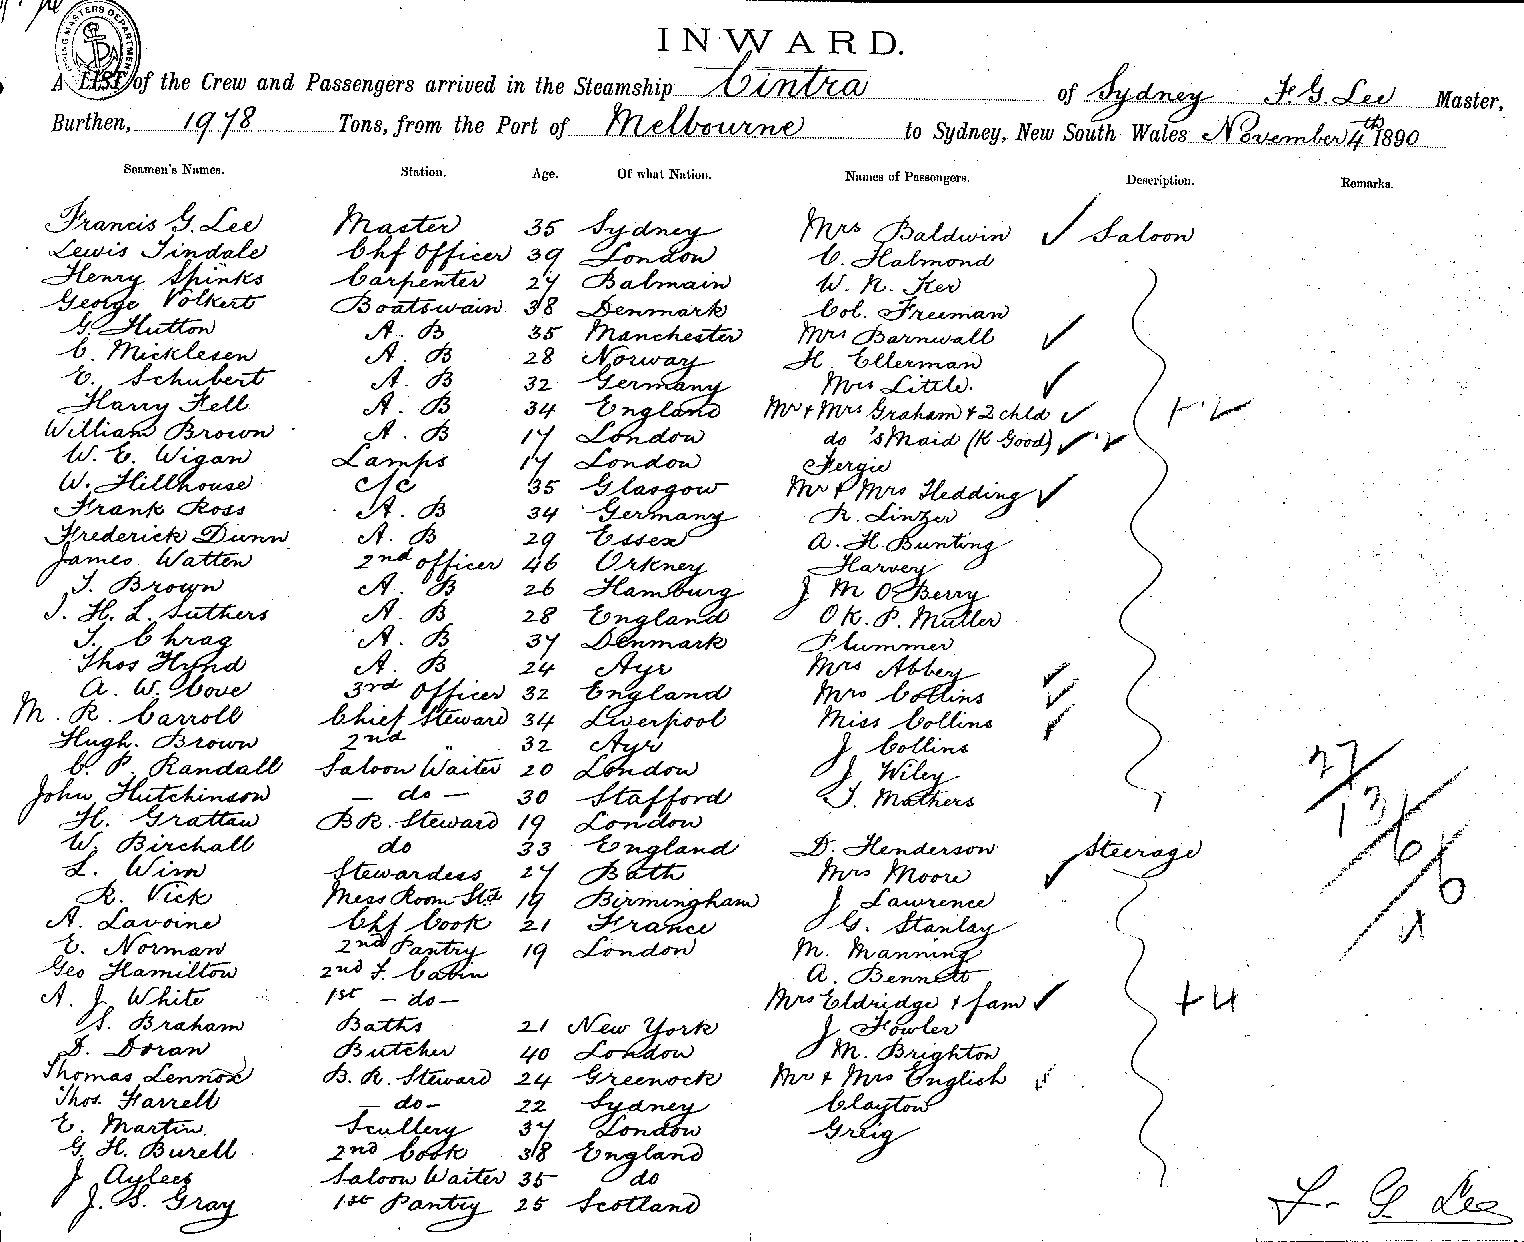 INWARD.
A LIST of the Crew and Passengers arrived in the Steamship Cintra of Sydney F. G Lee Master,
Burthen, 1978 Tons, from the Port of Melbourne to Sydney, New South Wales November 4th 1890
Seamen's Names. Station. Age. Of what Nation. Names of Passengers. Description. Remarks.
Francis G. Lee Master 35 Sydney Mrs Baldwin ✓ Saloon
Lewis Tindale Chf Officer 39 London C. Halmond
Henry Spinks Carpenter 27 Balmain W. N. Ker
George Volkert Boatswain 38 Denmark Col. Freeman
G. Hutton A. B 35 Manchester Mrs Barnwall ✓
C. Micklesen A. B 28 Norway H. Ellerman
E. Schubert A. B 32 Germany Mrs Little. ✓
Harry Fell A. B 34 England Mr & Mrs Graham & 2 chld ✓
William Brown A. B 17 London do 's Maid (K Good) ✓
W. E. Wigan Lamps 17 London Fergie
W. Hillhouse c/c 35 Glasgow Mr & Mrs Hedding ✓
Frank Ross A. B 34 Germany R. Linzer
Frederick Dunn A. B 29 Essex A. H. Bunting
James Watten 2nd officer 46 Orkney Harvey
T. Brown A. B 26 Hamburg J M O Berry
J. H. L. Suthers A. B 28 England O K. P. Muller
T. Chrag A. B 37 Denmark Plummer
Thos Hynd A. B 24 Ayr Mrs Abbey ✓
A. W. Cove 3rd Officer 32 England Mrs Collins ✓
M. R. Carroll Chief Steward 34 Liverpool Miss Collins ✓
Hugh. Brown 2nd " 32 Ayr J Collins
C. P. Randall Saloon Waiter 20 London J Wiley
John Hutchinson — do — 30 Stafford T. Mathers
H. Grattan B R. Steward 19 London
W. Birchall do 33 England D. Henderson Steerage
L. Wim Stewardess 27 Bath Mrs Moore ✓
R. Vick Mess Room Std 19 Birmingham J Lawrence
A. Lavoine Chf Cook 21 France G. Stanlay
E. Norman 2nd Pantry 19 London M. Manning
Geo Hamilton 2nd F. Cabin A. Bennett
A. J White 1st — do — Mrs Eldridge & fam ✓ +4
S. Braham Baths 21 New York J Fowler
D. Doran Butcher 40 London M. Brighton
Thomas Lennox B. R. Steward 24 Greenock Mr & Mrs English
Thos. Farrell — do — 22 Sydney Clayton
E. Martin. Scullery 37 London Greig
G. H. Burell 2nd Cook 38 England
J Aylees Saloon Waiter 35 do
J. S. Gray 1st Pantry 25 Scotland
F. G. Lee